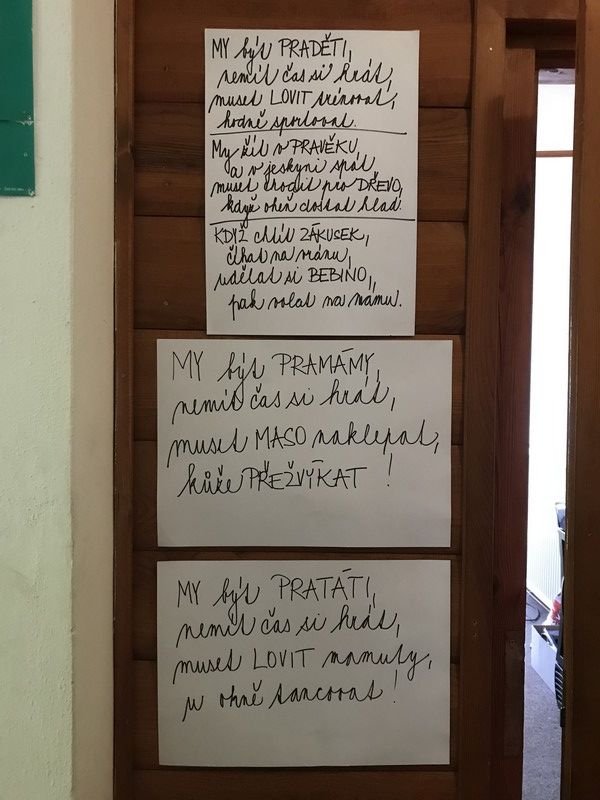 MY být PRADĚTI,
nemít čas si hrát,
muset LOVIT trénovat,
hodně sportovat.
My žít v PRAVĚKU,
a v jeskyni spát,
muset chodit pro DŘEVO,
když oheň dostat hlad.
KDYŽ chtít ZÁKUSEK,
číhat na vránu,
udělat si BEBINO,
pak volat na mámu.
MY být PRAMÁMY,
nemít čas si hrát,
muset MASO naklepat,
kůže PŘEŽVÝKAT!
MY být PRATÁTI,
nemít čas si hrát,
muset LOVIT mamuty,
u ohně tancovat!